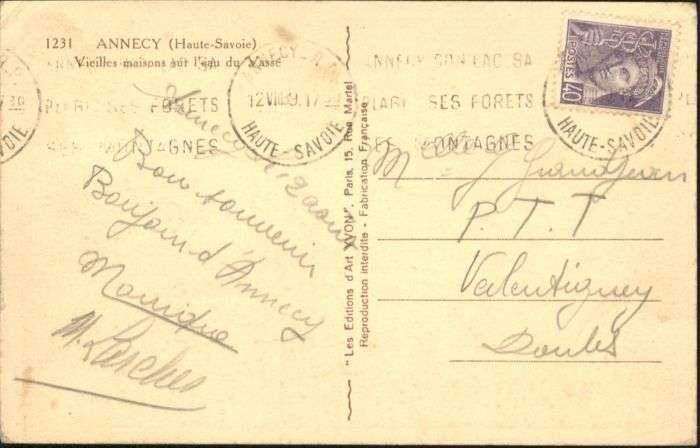 1231 ANNECY (Haute-Savoie)
Vieilles maisons sur l'eau du Vassé
ANNECY SON LAC SA
PLAGE SES FORETS
SES MONTAGNES
12 VIII 39. 17
HAUTE-SAVOIE
Annecy le 12 août
Bon souvenir
Bonjour d'Annecy
Monique
"Les Editions d'Art YVON". Paris, 15, Rue Martel
Reproduction interdite - Fabrication Française
ANNECY SON LAC SA
PLAGE SES FORETS
SES MONTAGNES
POSTES
40
HAUTE-SAVOIE
M
P.T.T
Valentigney
Doubs